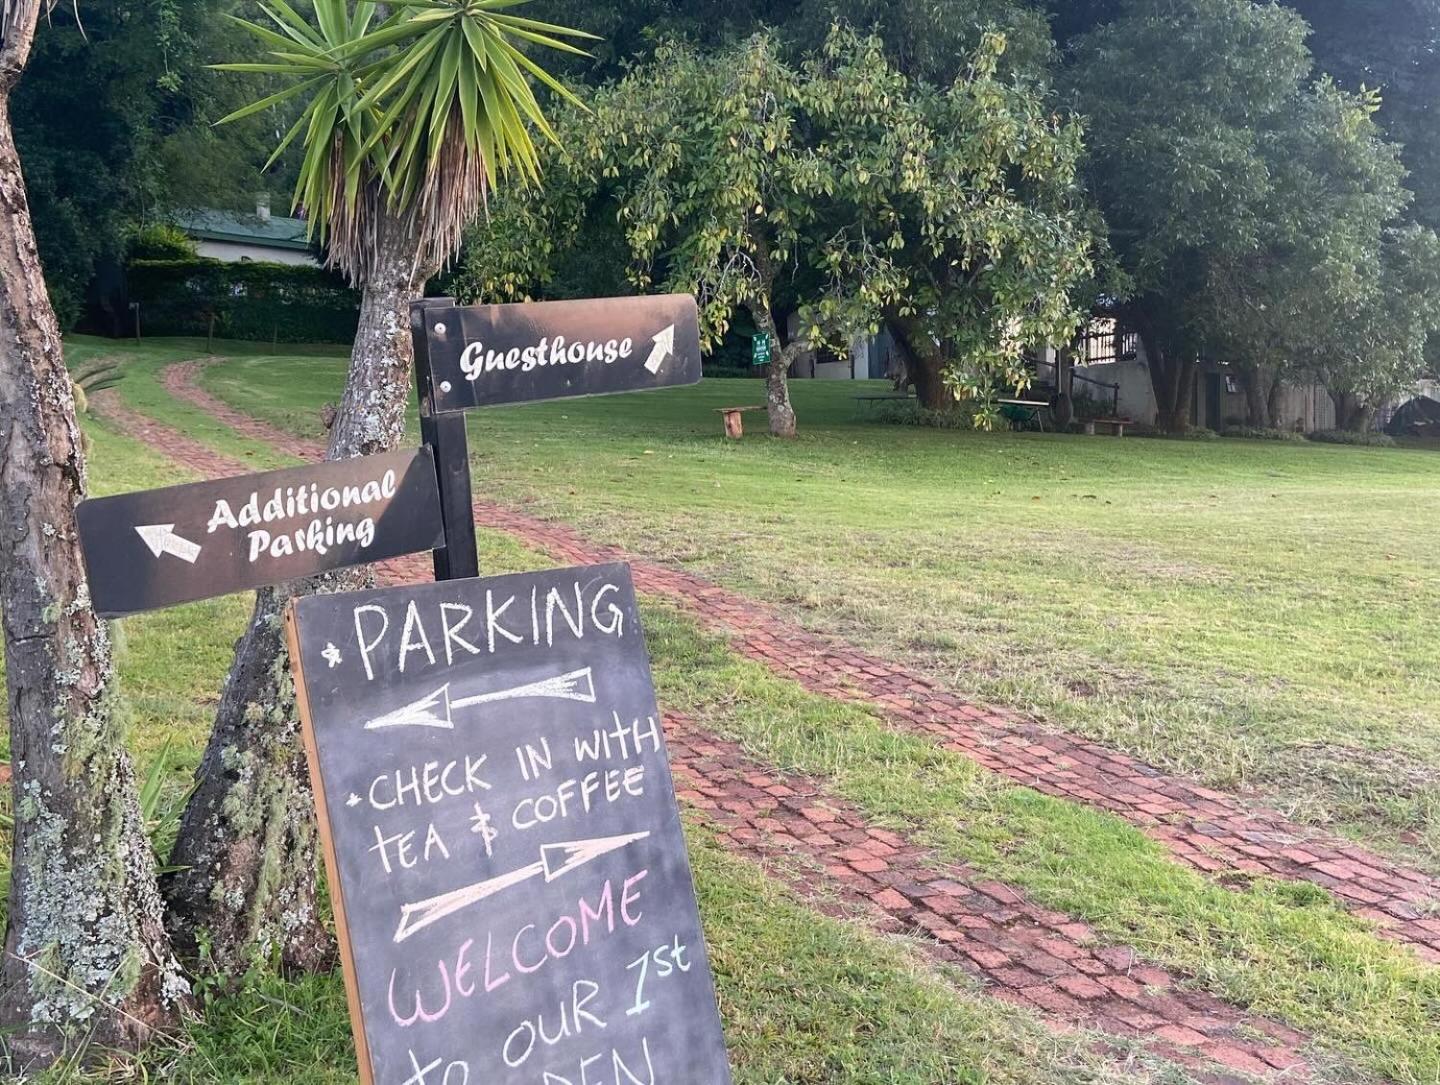 Guesthouse
Additional
Parking
PARKING
CHECK IN WITH
TEA & COFFEE
WELCOME
to OUR 1st